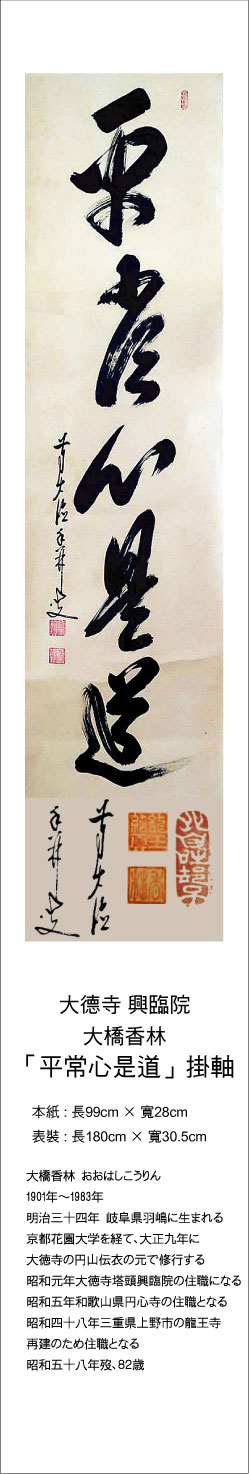 平常心是道
大徳寺 興臨院
大橋香林
「平常心是道」掛軸
本紙 : 長99cm × 寬28cm
表裝 : 長180cm × 寬30.5cm
大橋香林 おおはしこうりん
1901年～1983年
明治三十四年 岐阜県羽嶋に生まれる
京都花園大学を経て、大正九年に
大徳寺の円山伝衣の元で修行する
昭和元年大徳寺塔頭興臨院の住職になる
昭和五年和歌山県円心寺の住職となる
昭和四十八年三重県上野市の龍王寺
再建のため住職となる
昭和五十八年歿、82歳